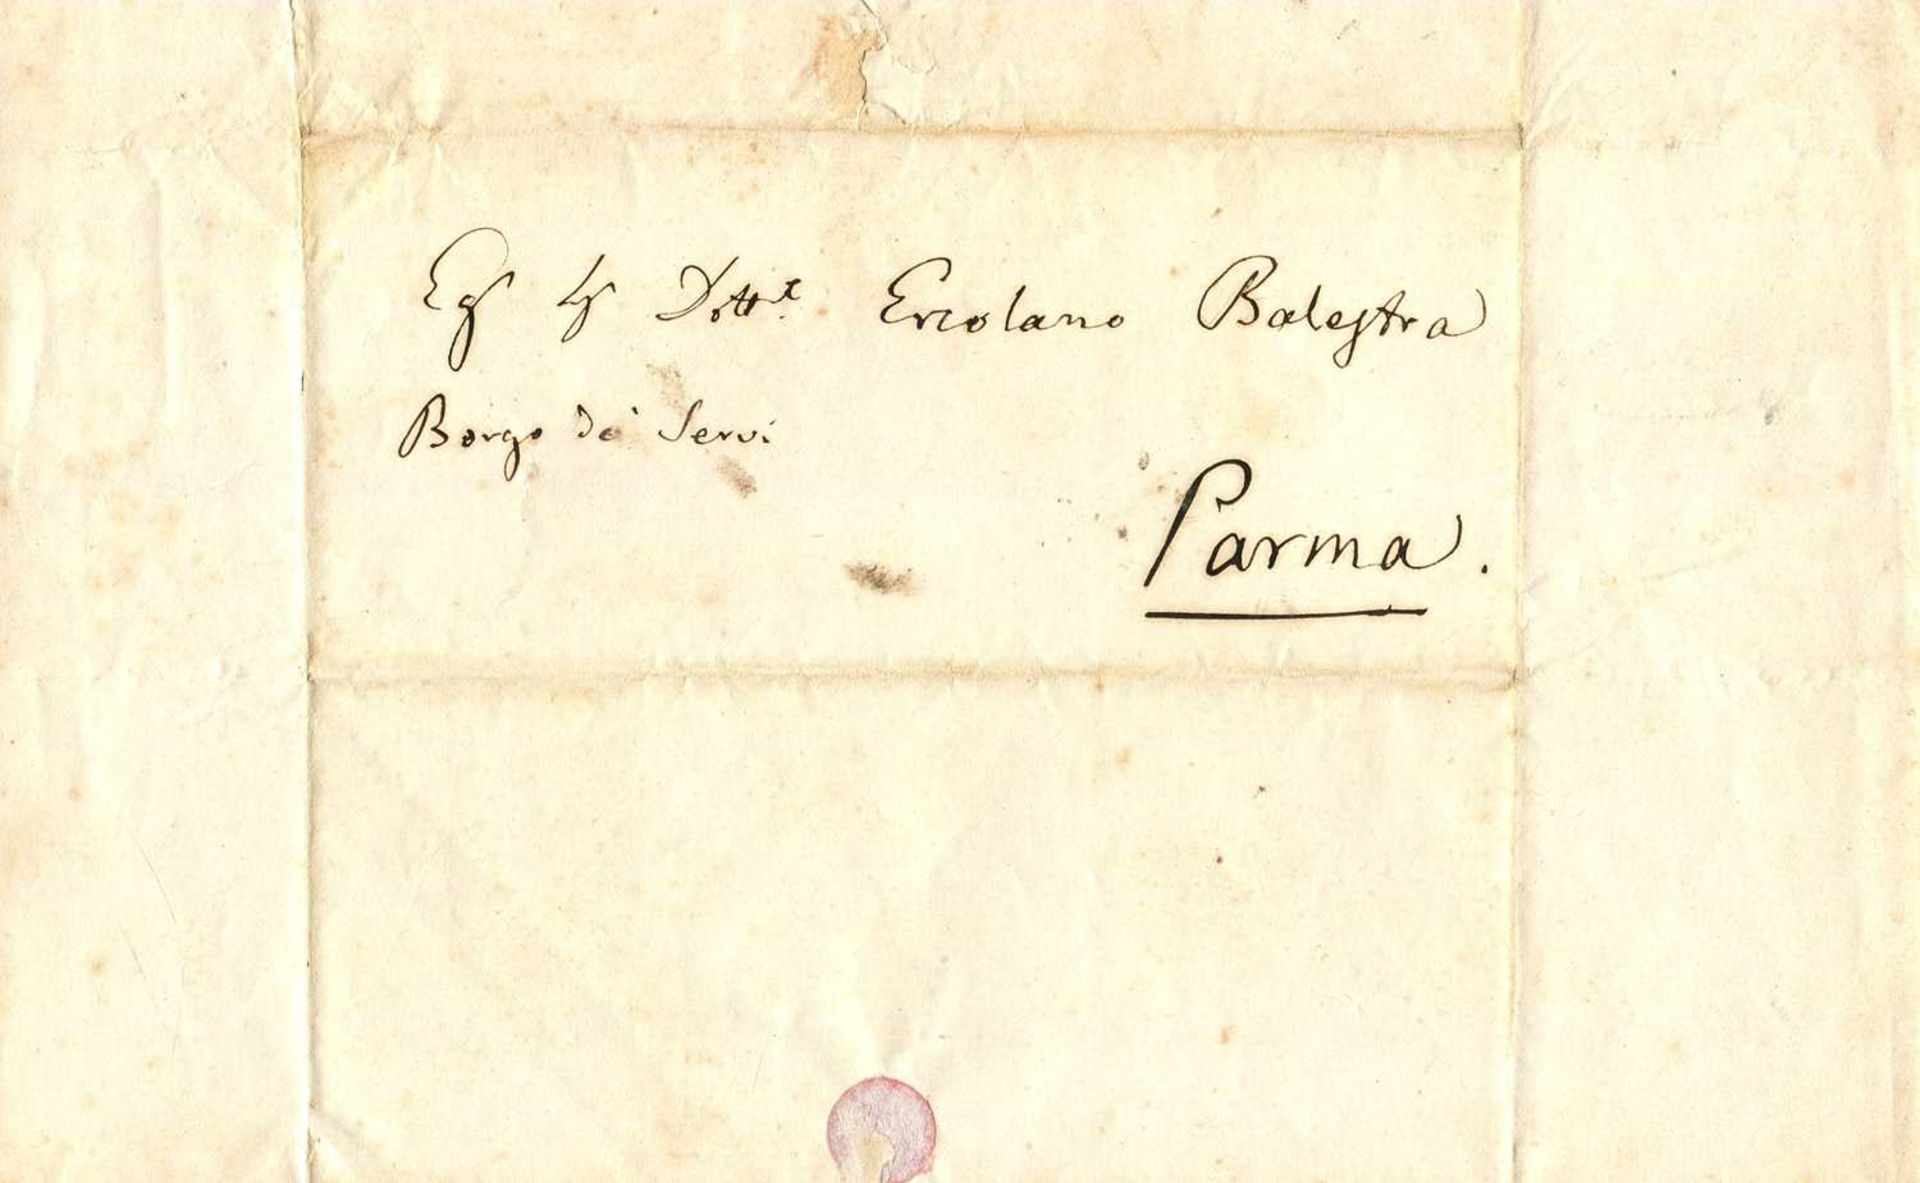 Eg Sg Dott.e Ercolano Balestra
Borgo de' Servi
Parma.